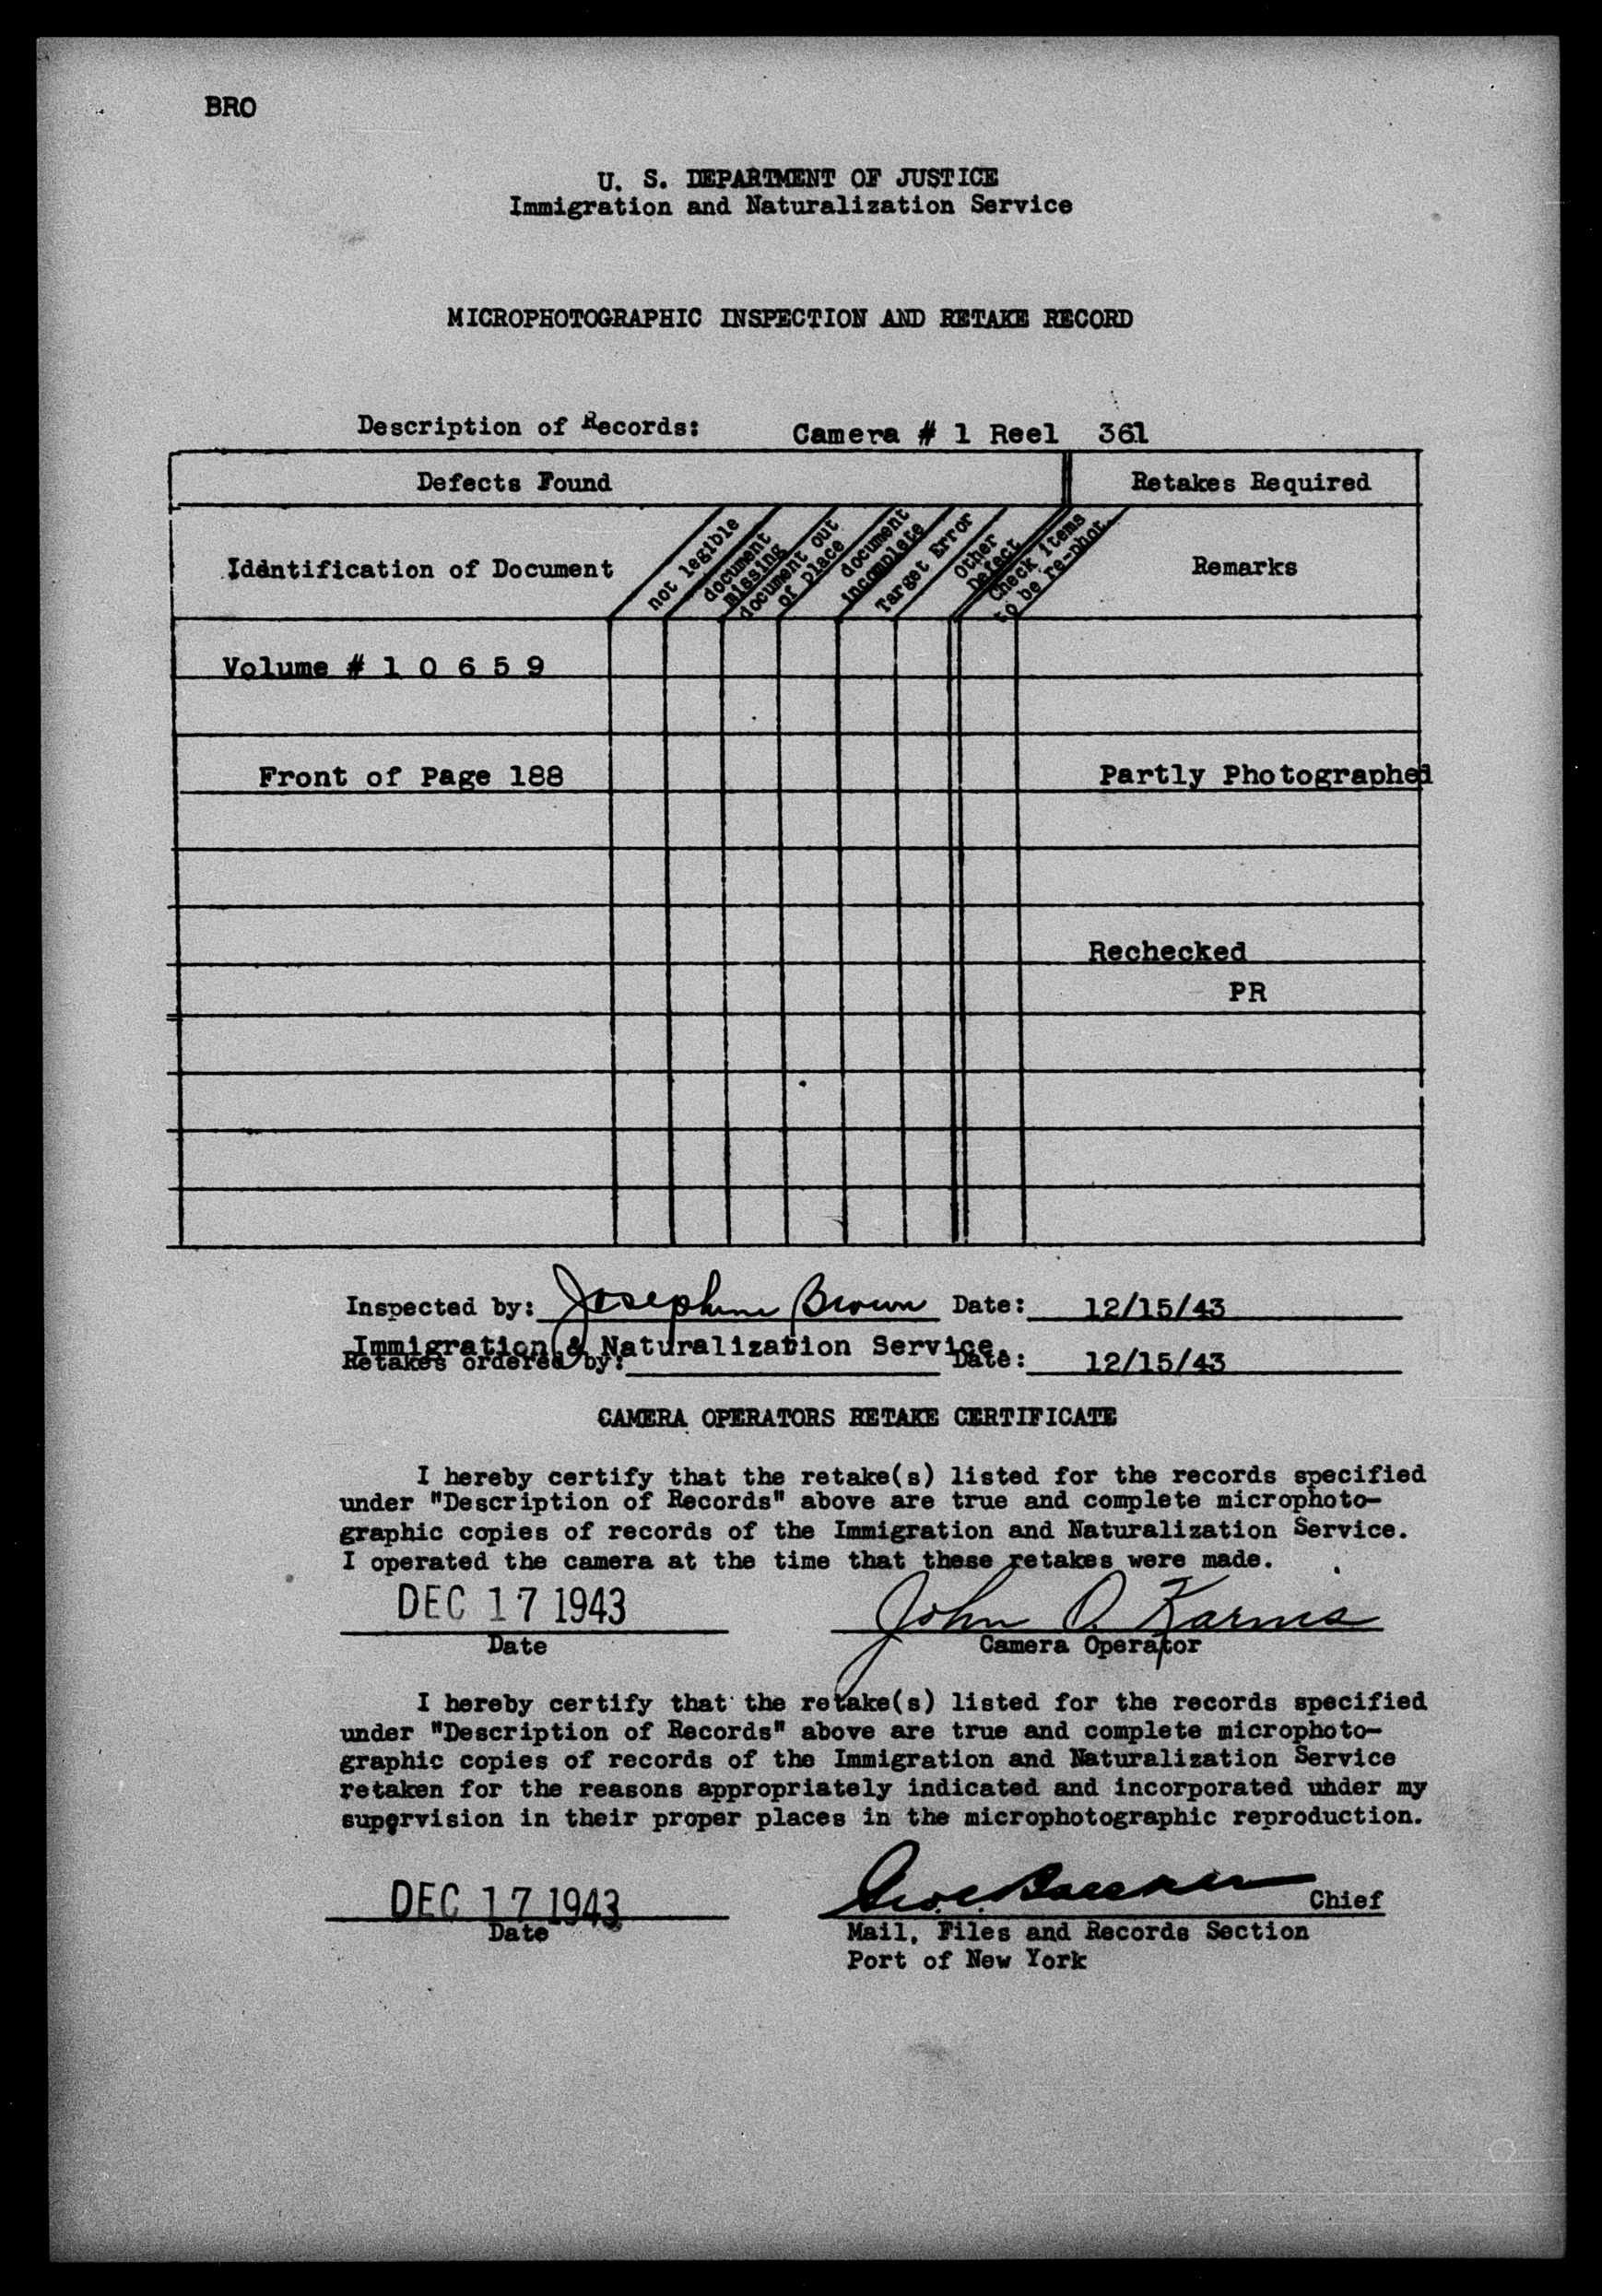 BRO
U. S. DEPARTMENT OF JUSTICE
Immigration and Naturalization Service
MICROPHOTOGRAPHIC INSPECTION AND RETAKE RECORD
Description of Records: Camera # 1 Reel 361
Defects Found Retakes Required
Identification of Document
not legible
document
missing
document out
of place
document
incomplete
Target Error
Other
Defect
Check items
to be re-phot.
Remarks
Volume # 1 0 6 5 9
Front of Page 188 Partly Photographed
Rechecked
PR
Inspected by: Josephine Brown Date: 12/15/43
Immigration & Naturalization Service.
Retakes ordered by: Date: 12/15/43
CAMERA OPERATORS RETAKE CERTIFICATE
I hereby certify that the retake(s) listed for the records specified
under "Description of Records" above are true and complete microphoto-
graphic copies of records of the Immigration and Naturalization Service.
I operated the camera at the time that these retakes were made.
DEC 17 1943 John O. Karnes
Date Camera Operator
I hereby certify that the retake(s) listed for the records specified
under "Description of Records" above are true and complete microphoto-
graphic copies of records of the Immigration and Naturalization Service
retaken for the reasons appropriately indicated and incorporated under my
supervision in their proper places in the microphotographic reproduction.
DEC 17 1943 Chief
Date Mail, Files and Records Section
Port of New York